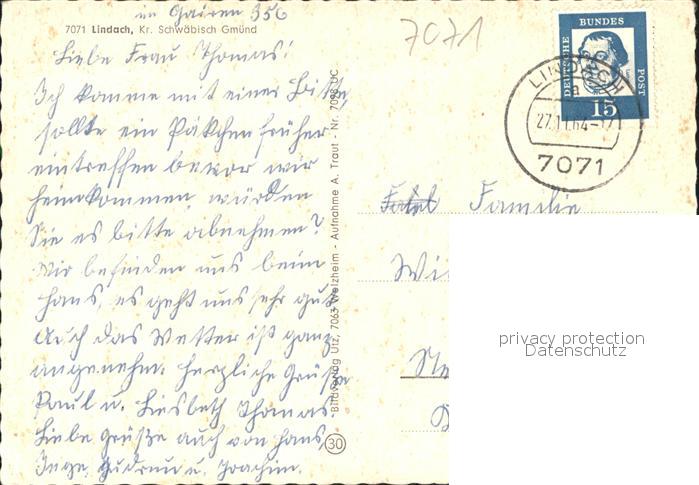 im Gairen 356
7071 Lindach, Kr. Schwäbisch Gmünd
7071
Liebe Frau Thomas!
Ich komme mit einer Bitte,
sollte ein Päkchen früher
eintreffen bevor wir
heimkommen, würden
Sie es bitte abnehmen?
Wir befinden uns beim
Hans, es geht uns sehr gut
Auch das Wetter ist ganz
angenehm. Herzliche Grüße
Paul u. Liesbeth Thomas.
Liebe Grüße auch von Hans,
Inge, Gudrun u. Joachim.
Bildverlag Utz, 7063 Welzheim - Aufnahme A. Traut - Nr. 7098 DC
30
DEUTSCHE
BUNDES
POST
15
LINDACH
a
27.11.64-17
7071
Familie
Wi
privacy protection
Datenschutz